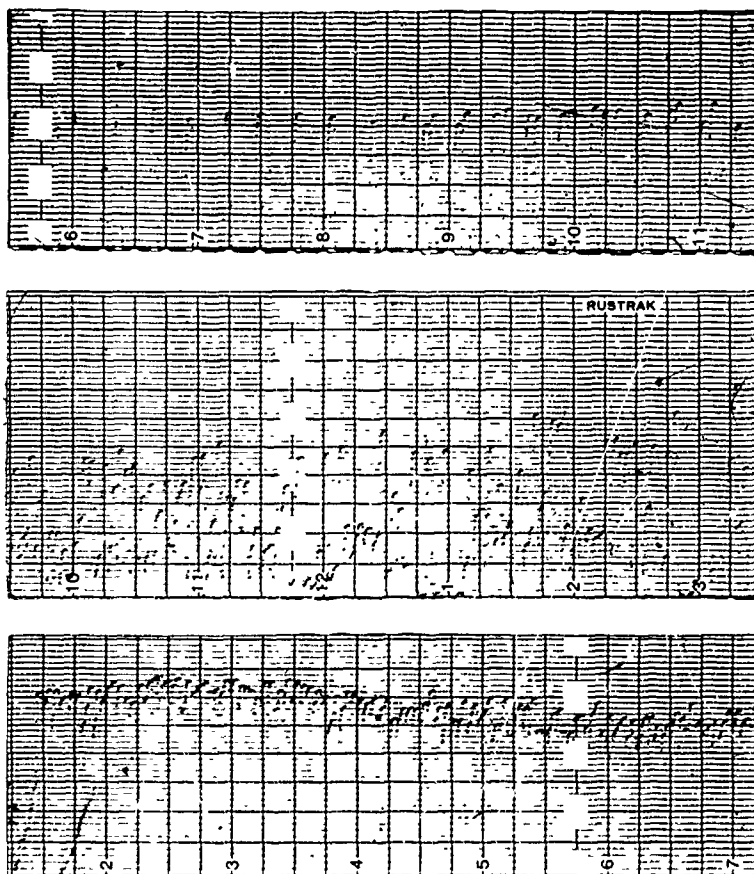 6 7 8 9 10 11
RUSTRAK
10 11 12 1 2 3
2 3 4 5 6 7